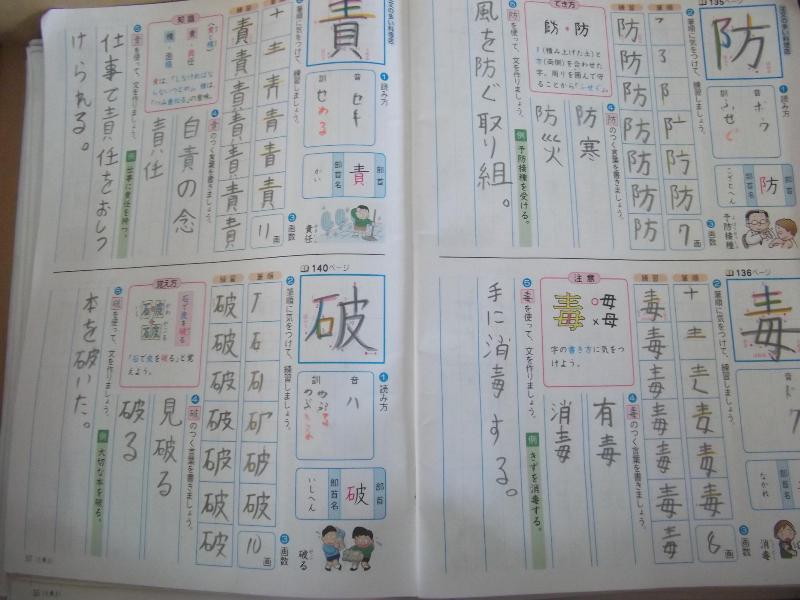 135ページ
防
❶読み方
音
ボウ
訓
ふせぐ
部首
防
部首名
こざとへん
❸画数
予防接種
7画
❷筆順に気をつけて、練習しましょう。
筆順
練習
防
防
防
防
防
防
でき方
❹防のつく言葉を書きましょう。
防寒
防災
❺防を使って、文を作りましょう。
例 予防接種を受ける。
風を防ぐ取り組。
責
❶読み方
音
セキ
訓
せめる
部首
責
部首名
かい
❸画数
責任
11画
筆順に気をつけて、練習しましょう。
責
責
責
責
責
知識
❹責のつく言葉を書きましょう。
自責の念
責任
❺責を使って、文を作りましょう。
例 仕事に責任を持つ。
仕事て責任をおしつ
けられる。
136ページ
毒
音
ドク
なかれ
❸画数
消毒
8画
❷筆順に気をつけて、練習しましょう。
筆順
練習
毒
毒
毒
毒
毒
毒
毒
注意
毒
○毋
×母
字の書き方に気をつ
けよう。
❹毒のつく言葉を書きましょう。
有毒
消毒
❺毒を使って、文を作りましょう。
例 きずを消毒する。
手に消毒する。
140ページ
破
❶読み方
音
ハ
訓
やぶる
やぶれる
部首
破
部首名
いしへん
❸画数
破る
10画
❷筆順に気をつけて、練習しましょう。
筆順
練習
破
破
破
破
破
破
破
覚え方
石で皮を破る
「石で皮を破る」と覚
えよう。
❹破のつく言葉を書きましょう。
見破る
破る
❺破を使って、文を作りましょう。
例 大切な本を破る。
本を破いた。